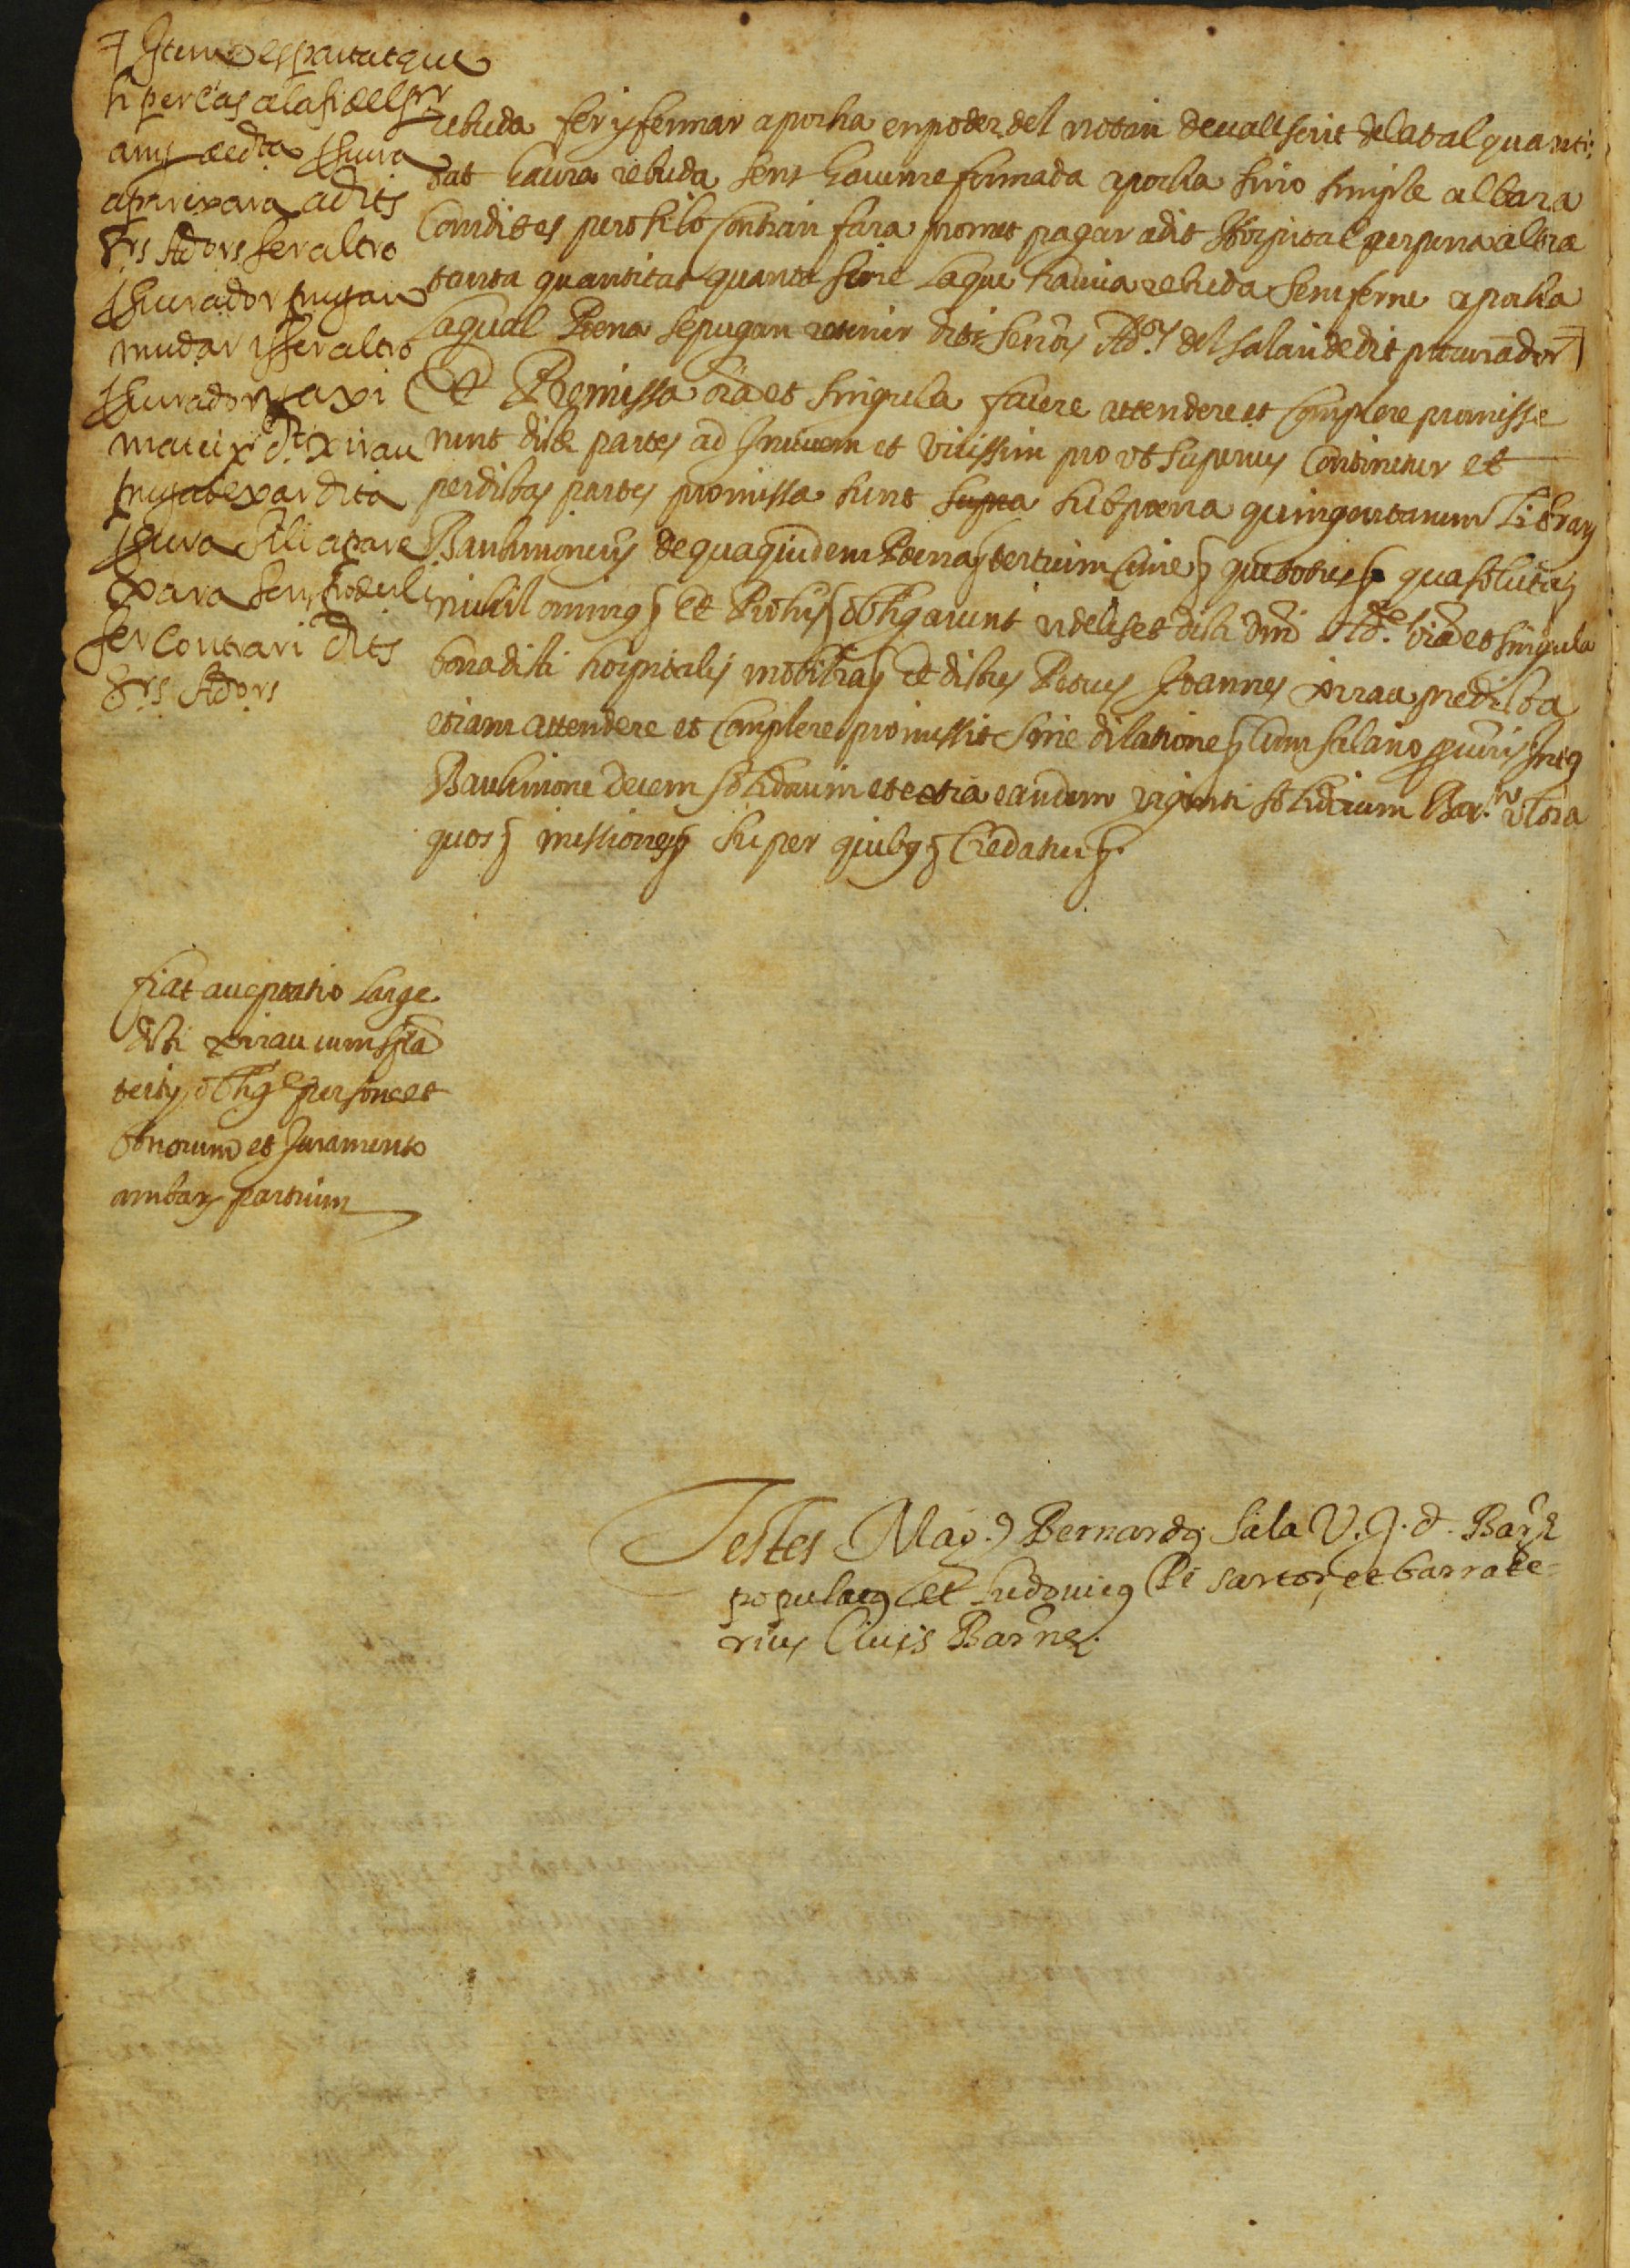 Item es pactat que
si per cas a la fi del pr
any de dita Cura
apareixara a dits
Srs Adors fer altro
Curador pugan
mudar y fer altro
Curador y axi
mateix dt Xirau
puga dexar dita
Cura si li apare
xara sens poder li
fer contrari dits
Srs Adors
rebuda fer y fermar apocha en poder del notari devall scrit de la tal quanti-
tat haura rebuda sens haverne fermada apocha sino simple albara
Com dit es pero si lo contrari fara promet pagar a dit Hospital per pena altra
tanta quantitat quanta sera la que havia rebuda sens ferne apocha
la qual Pena se pugan retenir dits senors Ador del salari de dit procurador
Et Premissa oia et singula facere attendere et complere promisse
runt dicte partes ad Invicem et vicissim pro ut superius continetur et
per dictas partes promissa sunt supra sub poena quingentarum Librarum
Barchinonensis de qua quidem Poena tertium sive qua soluta
nihilominus Et Pro his obligarunt videlicet dicti dni Ad.e oia et singula
bona dicti hospitalis mobilia et dictus Petrus Joannes Xirau predicta
etiam attendere et complere promissit sine dilatione cum salario Intus
Barchinone decem solidorum et extra eandem viginti solidorum Bar. Ultra
quos missiones super quibus Credatur
fiat acceptatio large
dicti Xirau cum
oblig personae et
bonorum et Juramento
ambar partium
Testes Mag. Bernardus Sala V. J. d. Bar
populatus et Ludovicus Pi sartor et barrate-
rius Civis Barne.